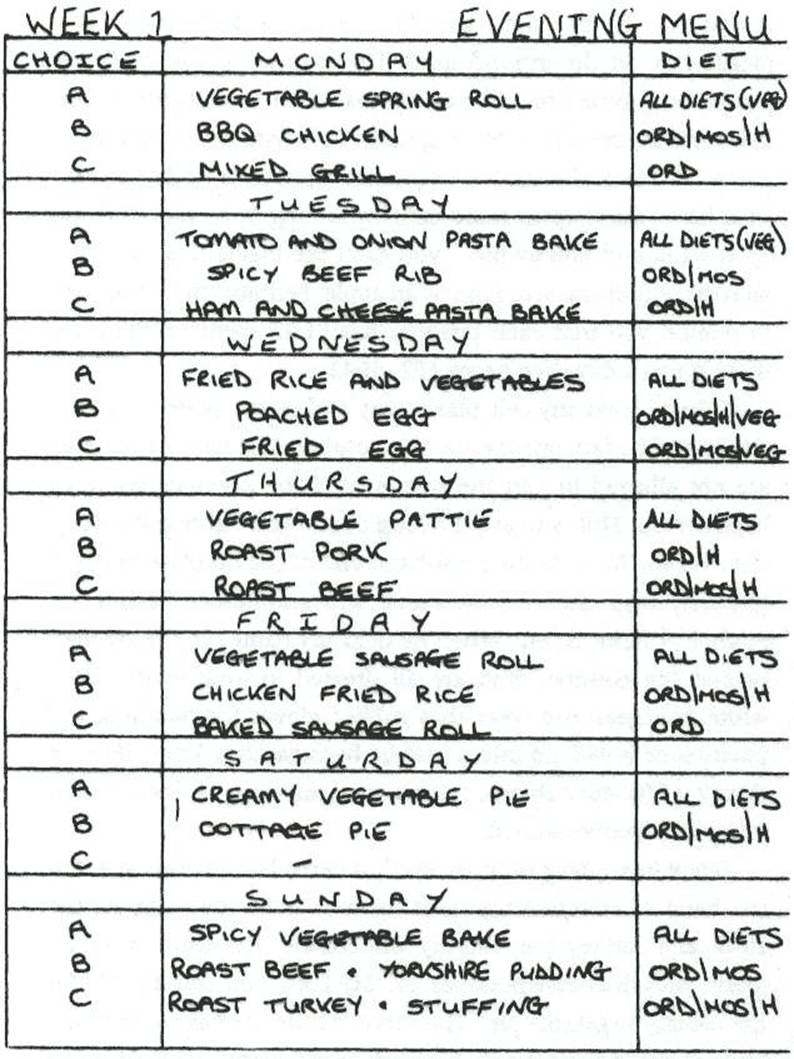 WEEK 1 EVENING MENU
CHOICE MONDAY DIET
A VEGETABLE SPRING ROLL ALL DIETS (VEG)
B BBQ CHICKEN ORD/MOS/H
C MIXED GRILL ORD
TUESDAY
A TOMATO AND ONION PASTA BAKE ALL DIETS (VEG)
B SPICY BEEF RIB ORD/MOS
C HAM AND CHEESE PASTA BAKE ORD/H
WEDNESDAY
A FRIED RICE AND VEGETABLES ALL DIETS
B POACHED EGG ORD/MOS/H/VEG
C FRIED EGG ORD/MOS/VEG
THURSDAY
A VEGETABLE PATTIE ALL DIETS
B ROAST PORK ORD/H
C ROAST BEEF ORD/MOS/H
FRIDAY
A VEGETABLE SAUSAGE ROLL ALL DIETS
B CHICKEN FRIED RICE ORD/MOS/H
C BAKED SAUSAGE ROLL ORD
SATURDAY
A CREAMY VEGETABLE PIE ALL DIETS
B COTTAGE PIE ORD/MOS/H
C –
SUNDAY
A SPICY VEGETABLE BAKE ALL DIETS
B ROAST BEEF • YORKSHIRE PUDDING ORD/MOS
C ROAST TURKEY • STUFFING ORD/MOS/H